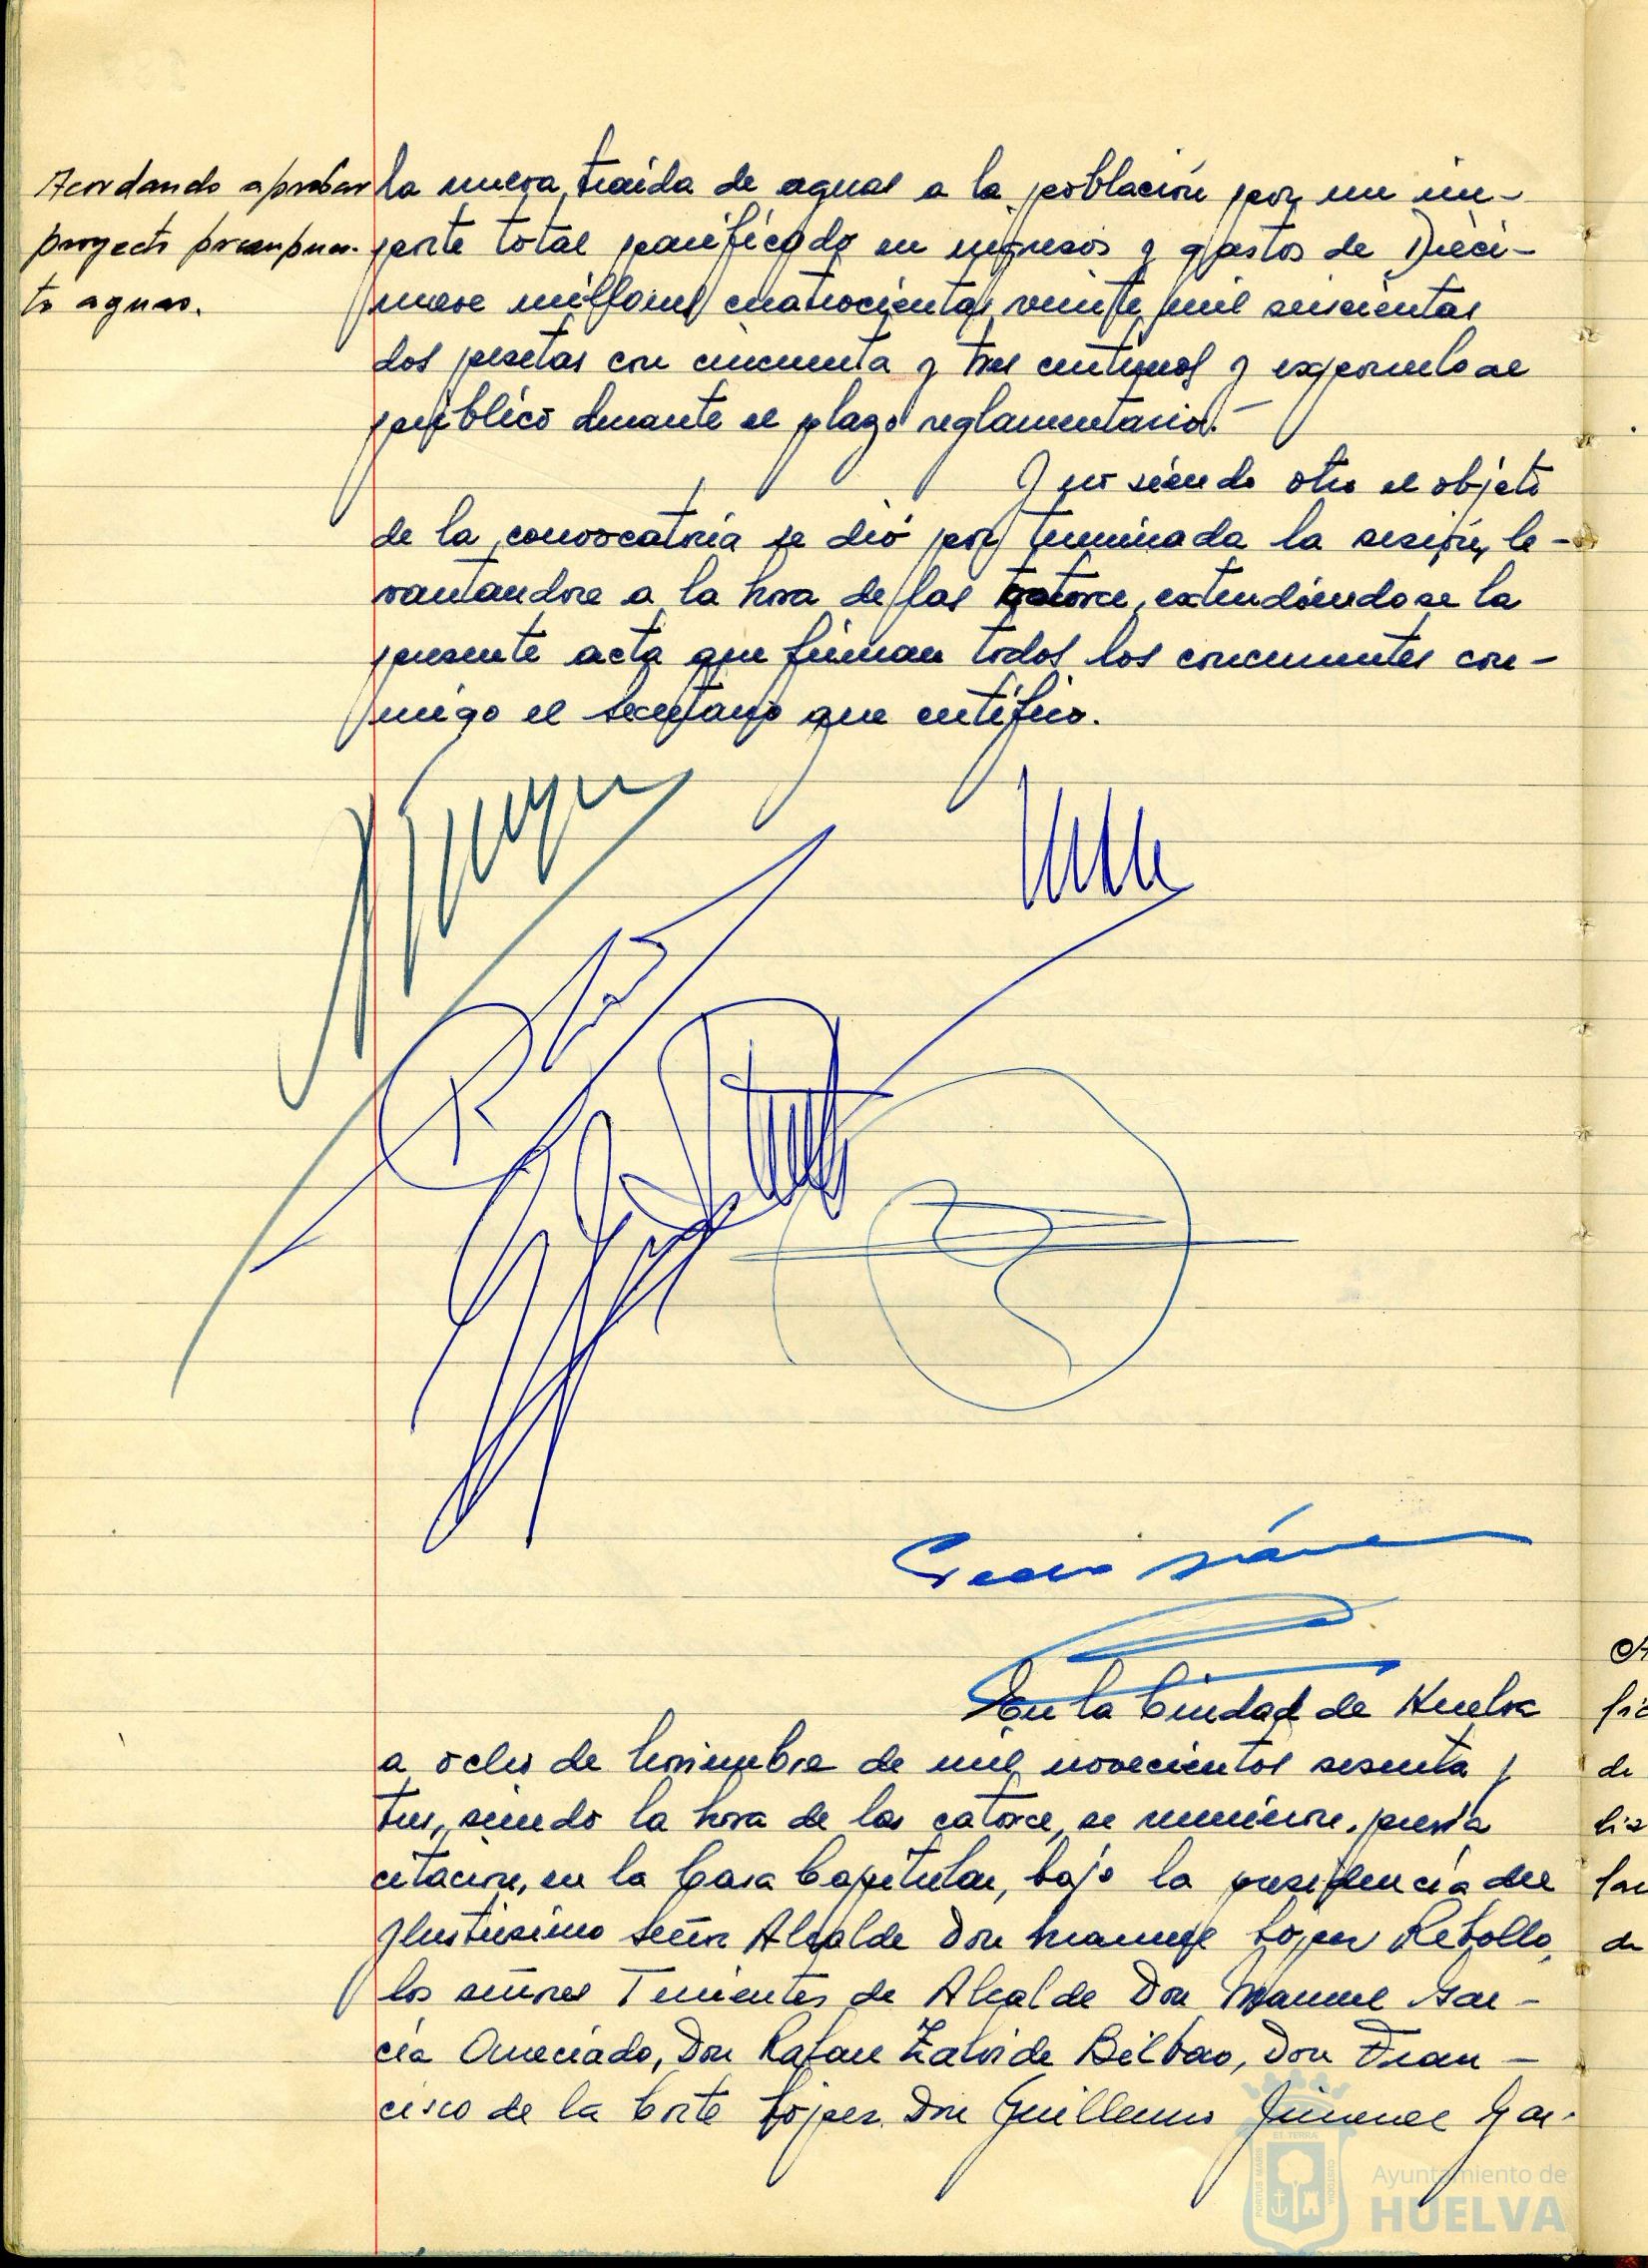 Acordando aprobar
proyecto presupues-
to aguas.
la nueva traida de aguas a la población por un im-
porte total panificado en ingresos y gastos de Dieci-
nueve millones cuatrocientas veinte mil seiscientas
dos pesetas con cincuenta y tres centimos y exponerlo al
público durante el plazo reglamentario.-
Y no siendo otro el objeto
de la convocatoria se dió por terminada la sesión, le-
vantandose a la hora de las catorce, extendiendose la
presente acta que firman todos los concurrentes con-
migo el Secretario que certifico.
En la Ciudad de Huelva
a ocho de Noviembre de mil novecientos sesenta y
tres, siendo la hora de las catorce, se reunieron, previa
citación, en la Casa Capitular, bajo la presidencia del
Ilustrisimo Señor Alcalde Don Manuel López Rebollo,
los señores Tenientes de Alcalde Don Manuel Gar-
cía Domeciado, Don Rafael Zalvide Bilbao, Don Fran-
cisco de la Corte López Don Guillermo Jimenez Gar-
PORTUS MARIS
ET TERRA
CUSTODIA
Ayuntamiento de
HUELVA